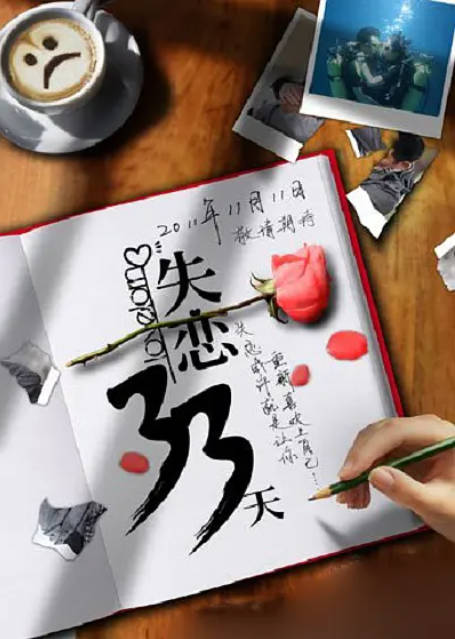 2011年11月11日
敬请期待
失恋
33
天
失恋或许就是让你
重新喜欢上自己…